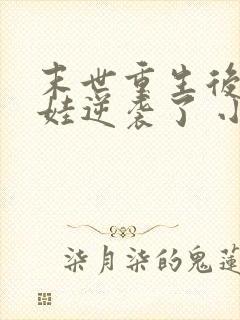 末世重生後
娃逆袭了小
柒月柒的鬼蓮